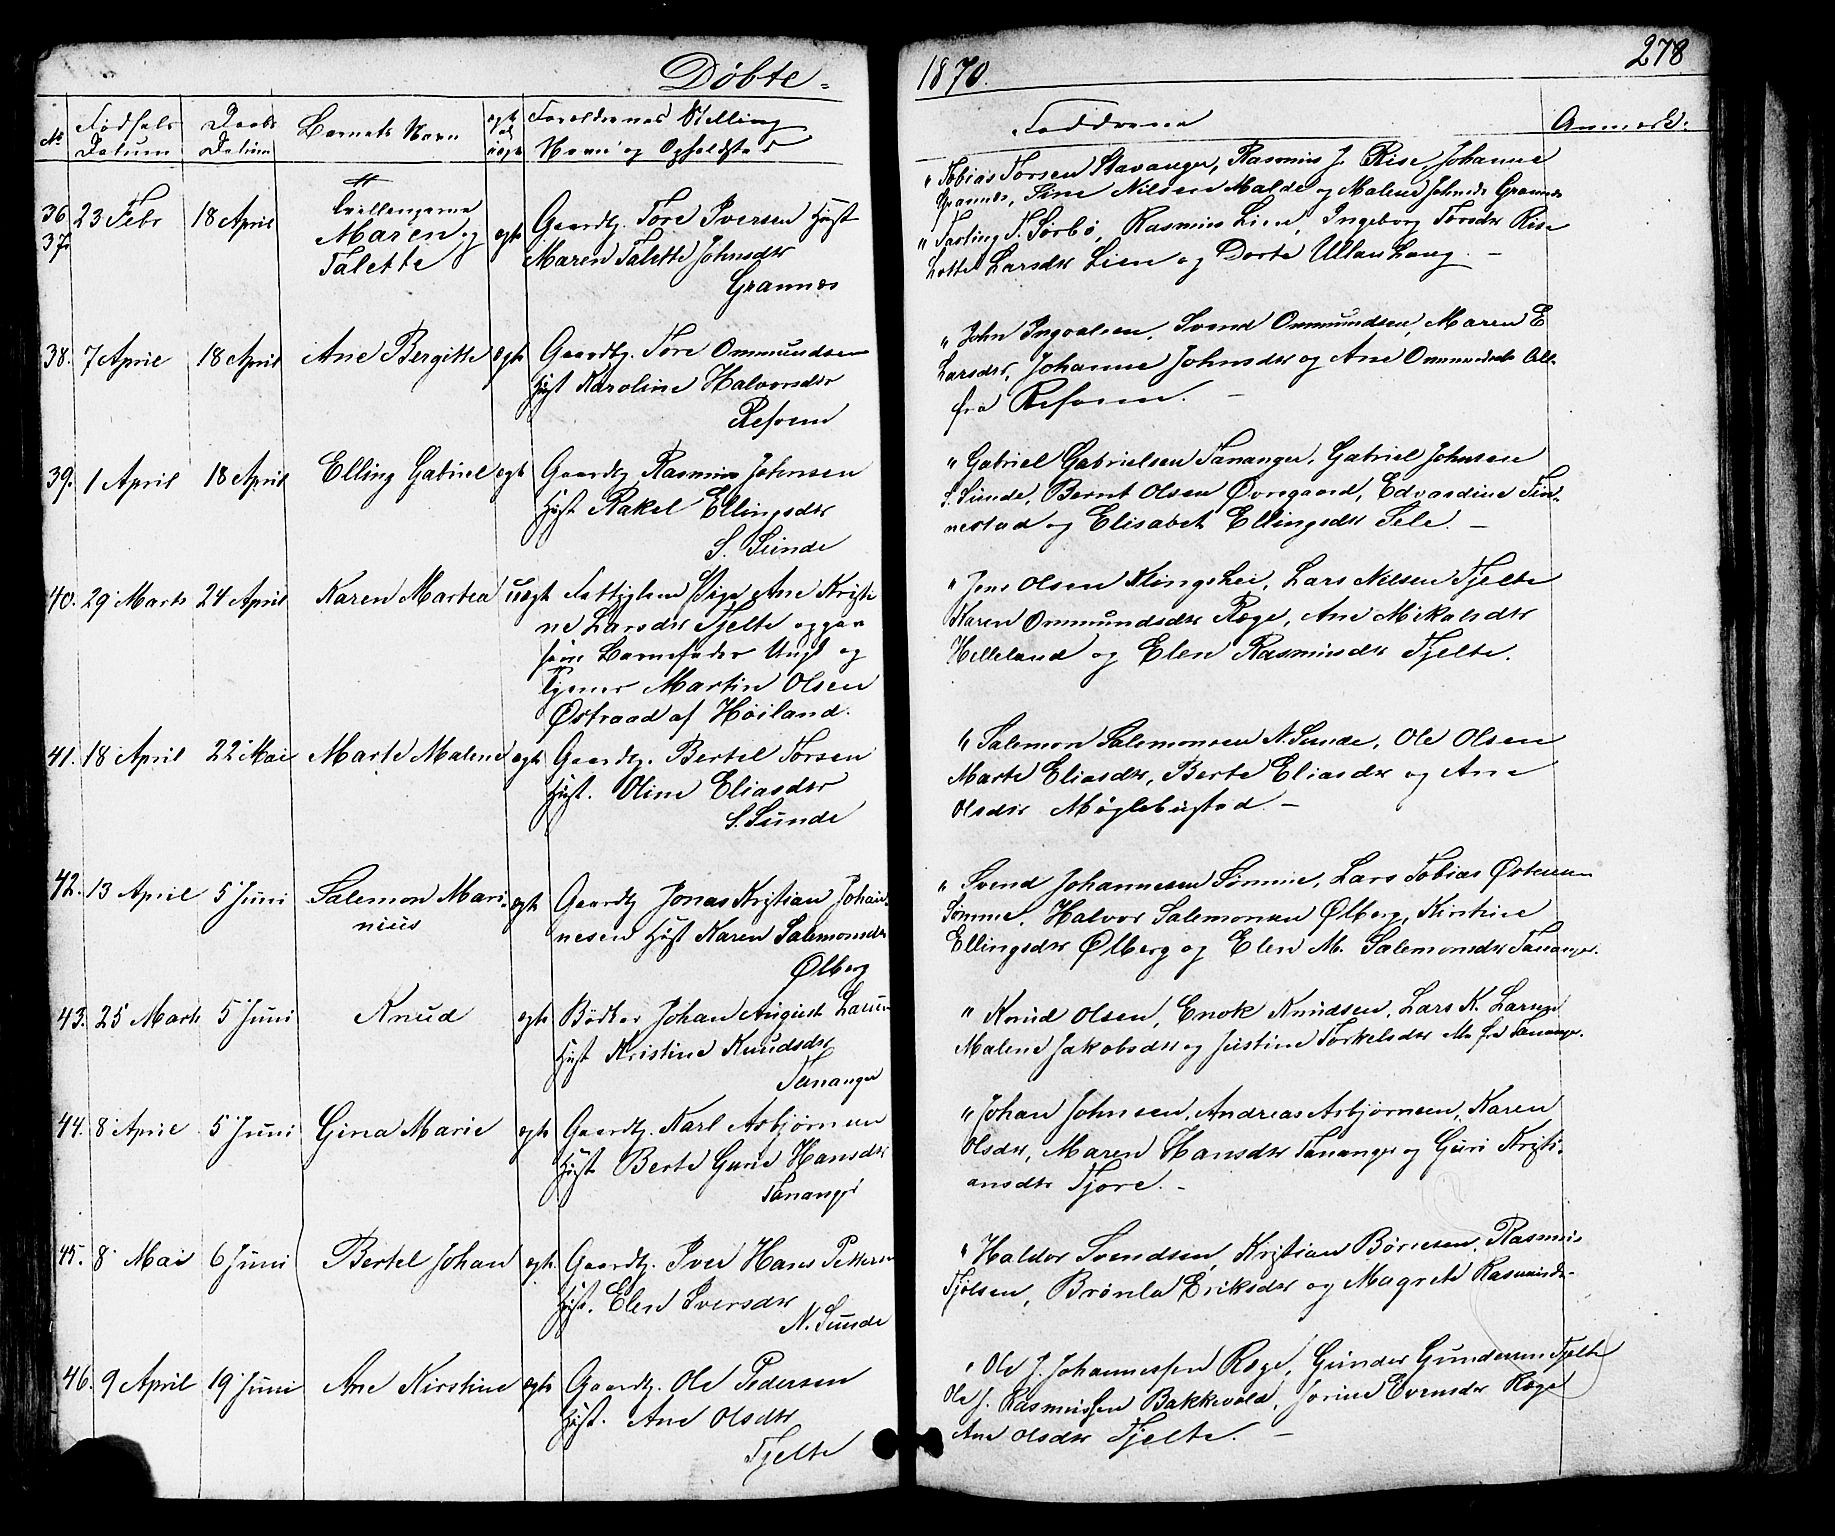 Døbte.
1870.
278
No
Fødsels Datum
Daabs Datum
Barnets Navn
egte el. uegte
Forældrenes Stilling
Navn og Opholdsted
Faddrene
Anmærk.
36 37. 23 Febr 18 April Tvillingerne Maren og Talette egte
Gaardbr. Tore Iversen Hust
Maren Talette Johnsdtr
Grannes
" Tobias Torsen Stavanger, Rasmus J. Rise, Johanne
Grannes, Sine Nilsen Malde og Malene Johnsdr Grannes
" Tarling T. Sørbø, Rasmus Lien, Ingeborg Torsdtr Rise
Lotte Larsdtr Lien og Dorte Ullanhaug. –
38. 7 April 18 April Ane Bergitte egte
Gaardbr. Tore Ommundsen
Hust Karoline Halvorsdtr
Resnen
" John Ingvalsen, Svend Ommundsen, Maren E
Larsdtr, Johanne Johnsdtr og Ane Ommundsdtr Alle
fra Resnen. –
39. 1 April 18 April Elling Gabriel egte
Gaardbr Rasmus Johnsen
Hust Rakel Ellingsdtr
S. Sunde
" Gabriel Gabrielsen Tananger, Gabriel Johnsen
S. Sunde, Bernt Olsen Øvregaard, Edvardine Fin-
nestad og Elisabet Ellingsdtr Sele. –
40. 29 Marts 24 April Karen Martea uegte
Fattiglem Pige Ane Kristi
ne Larsdtr Tjelte opgav
som Barnefader Ungk og
Tjener Martin Olsen
Østraad af Høiland.
" Jens Olsen Klingshei, Lars Nilsen Tjelte
Karen Ommundsdtr Ræge, Ane Mikalsdtr
Helleland og Elen Rasmusdtr Tjelte.
41. 18 April 22 Mai Marte Malene egte
Gaardbr. Bertel Torsen
Hust. Oline Eliasdtr
S. Sunde
" Salemon Salemonsen N. Sunde, Ole Olsen
Marte Eliasdtr, Berte Eliasdtr og Ane
Olsdtr Møglebustad –
42. 13 April 5 Juni Salemon Mari-
nius egte
Gaardbr Jonas Kristian Johan-
nesen Hust Karen Salemonsdtr
Ølberg
" Svend Johannesen Sømme, Lars Tobias Østensen
Sømme, Halvor Salemonsen Ølberg, Kirstine
Ellingsdtr Ølberg og Elen M. Salemonsdtr Tananger.
43. 25 Marts 5 Juni Knud egte
Bødker Johan August Larsen
Hust Kristine Knudsdtr
Tananger
" Knud Olsen, Enok Knudsen, Lars K. Larsen
Malene Jakobsdtr og Justine Torkelsdtr Alle fra Tananger.
44. 8 April 5 Juni Gina Marie egte
Gaardbr. Karl Asbjørnsen
Hust Berte Gurie Hansdtr
Tananger
" Johan Johnsen, Andreas Asbjørnsen, Karen
Olsdtr, Maren Hansdtr Tananger og Guri Kristi-
ansdtr Tjore. –
45. 8 Mai 6 Juni Bertel Johan egte
Gaardbr. Iver Hans Pettersen
Hust. Elen Iversdtr
N. Sunde
" Haldor Svendsen, Kristian Børresen, Rasmus
Tjølsen, Brønla Eriksdtr og Magrete Rasmusdr.
46. 9 April 19 Juni Ane Kirstine egte
Gaardbr. Ole Pedersen
Hust. Ane Olsdtr
Tjelte
" Ole J. Johannessen Ræge, Gunder Gundersen Tjelte
Ole J. Rasmussen Bakkevold, Jorine Evensdtr Ræge
Ane Olsdtr Tjelte. –